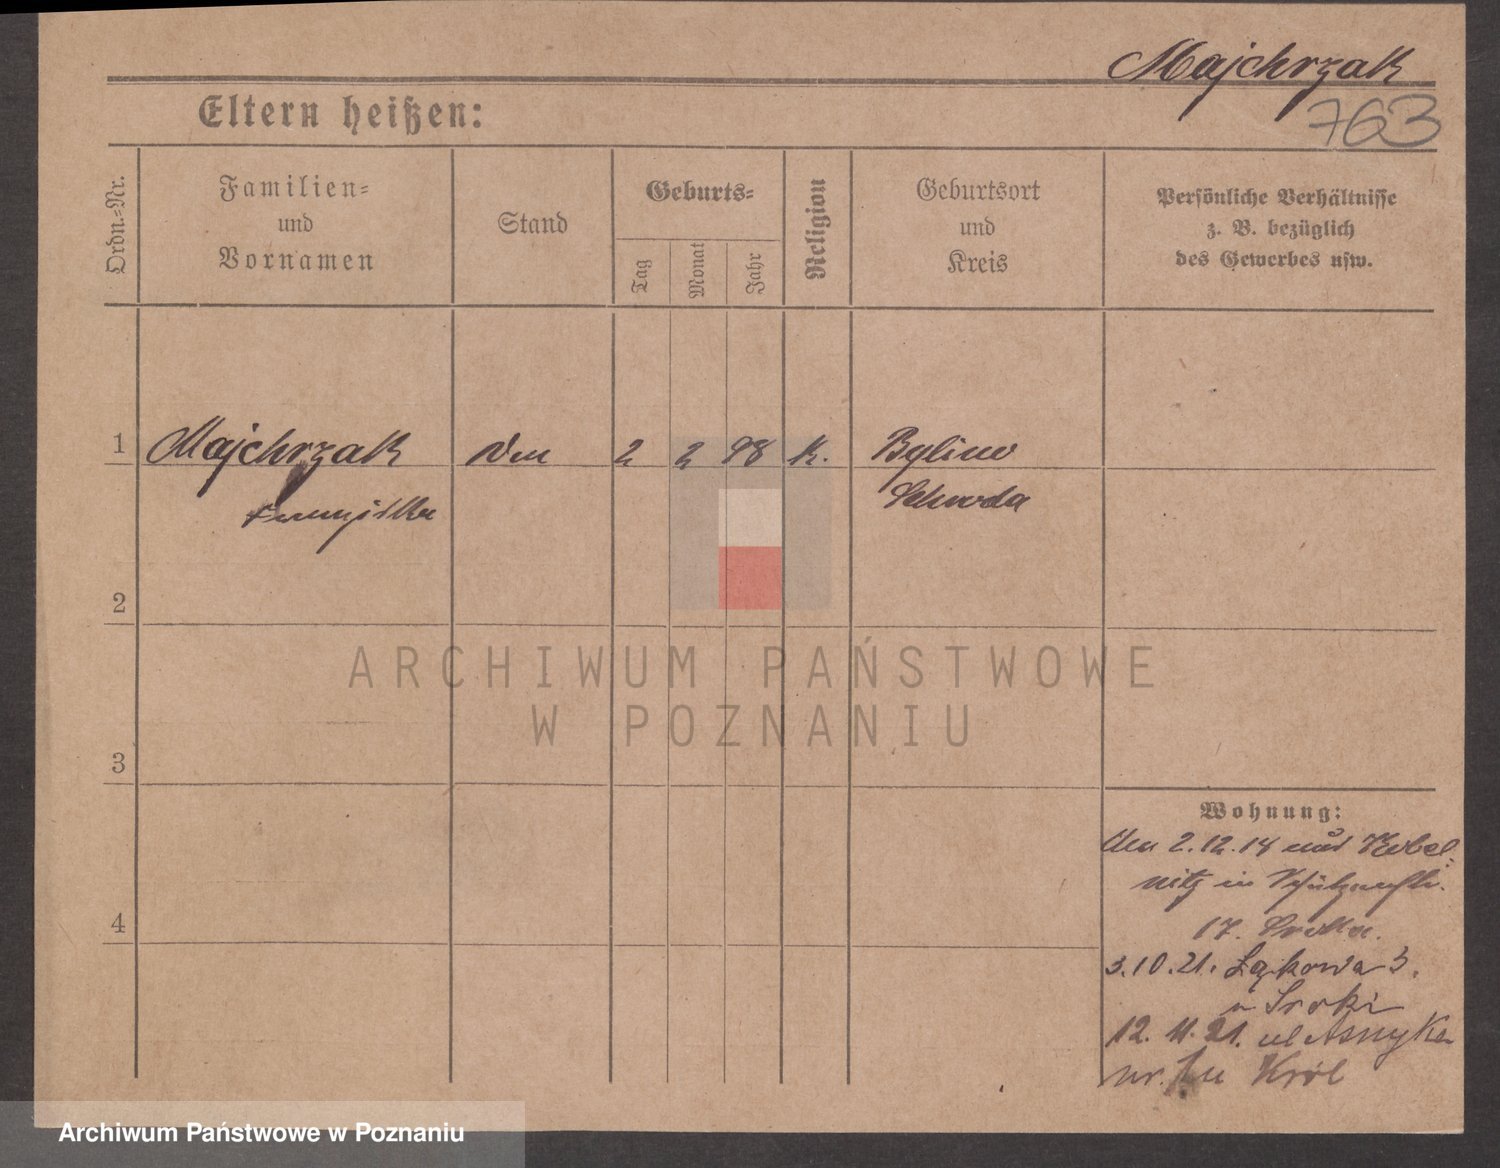 Majchrzak
763
Eltern heißen:
Ordn.-Nr.
Familien-
und
Vornamen
Stand
Geburts-
Tag
Monat
Jahr
Religion
Geburtsort
und
Kreis
Persönliche Verhältnisse
z. B. bezüglich
des Gewerbes usw.
1
Majchrzak
2 2 98 K.
Schroda
2
ARCHIWUM PAŃSTWOWE
W POZNANIU
3
Wohnung:
2.12.14 aus Kobel-
nitz in
4
17.
3.10.21. Łąkowa 3.
u Sroki
12. 11. 21. ul Asnyka
nr. 1 u Król
Archiwum Państwowe w Poznaniu